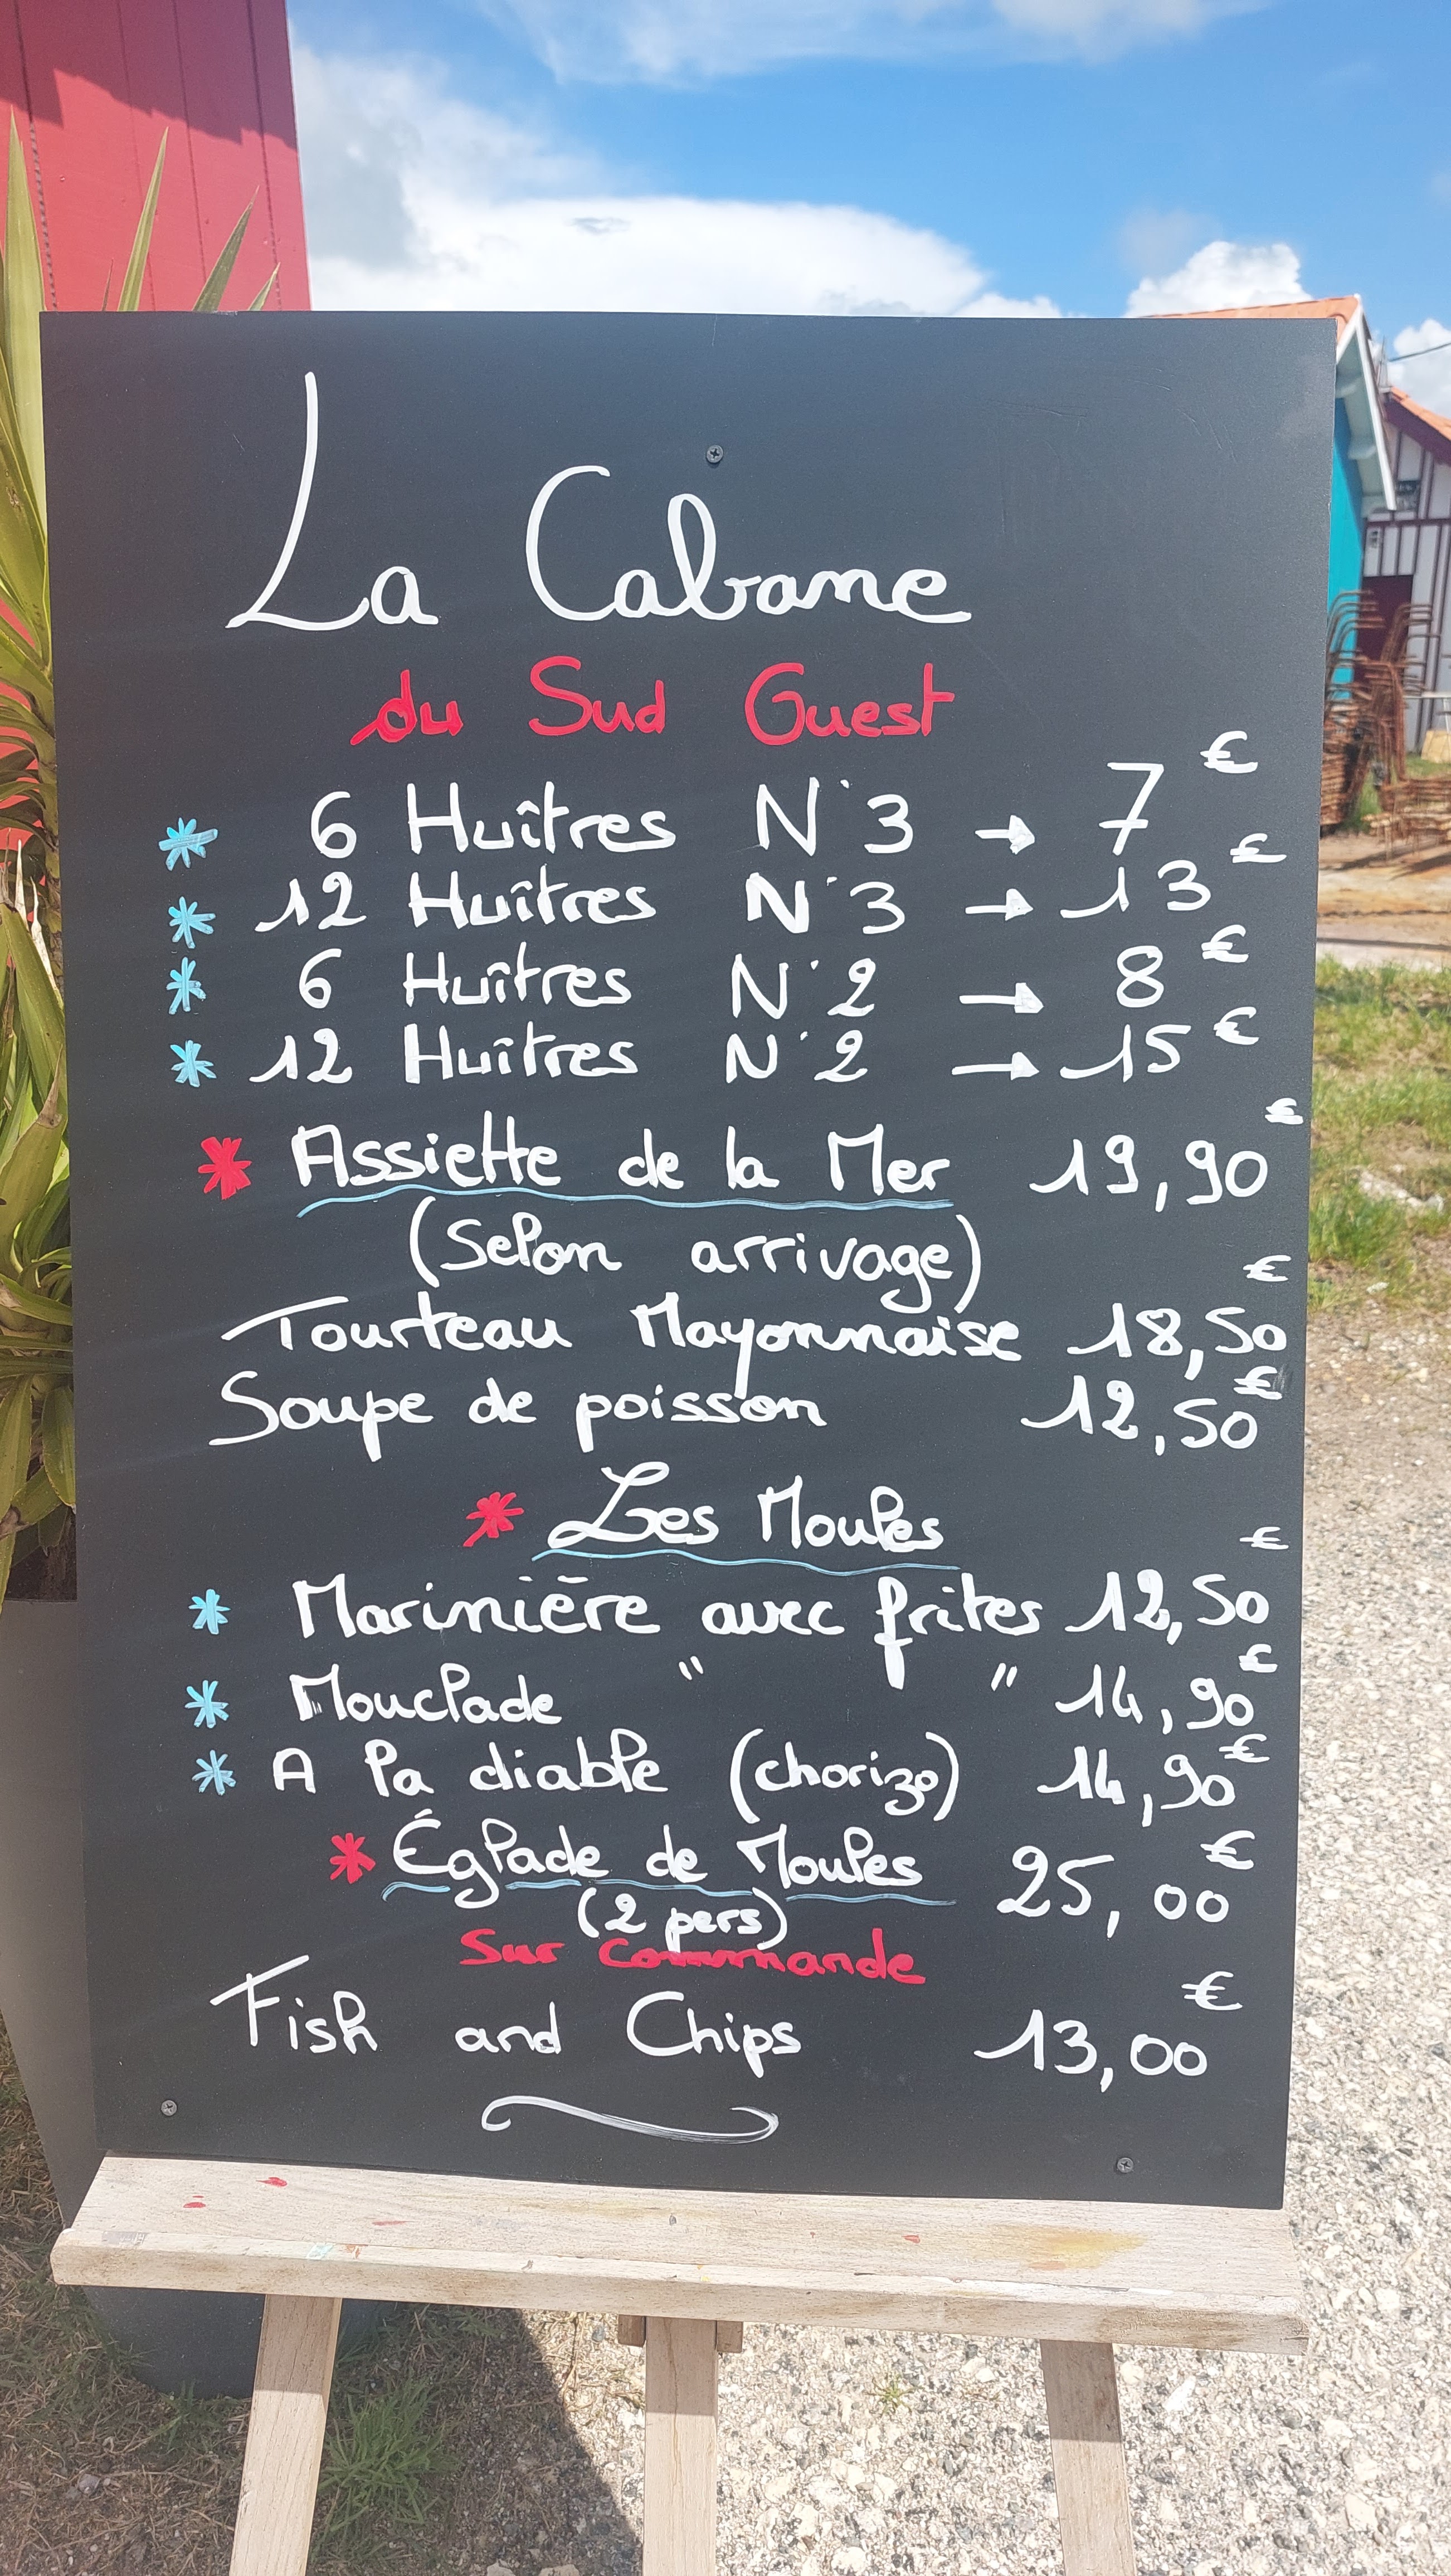 La Cabane
du Sud Ouest
6 Huîtres N°3 → 7€
12 Huîtres N°3 → 13€
6 Huîtres N°2 → 8€
12 Huîtres N°2 → 15€
Assiette de la Mer 19,90€
(Selon arrivage)
Tourteau Mayonnaise 18,50€
Soupe de poisson 12,50€
Les Moules
Marinière avec frites 12,50€
Mouclade " " 14,90€
A la diable (chorizo) 14,90€
Églade de Moules 25,00€
(2 pers)
Sur Commande
Fish and Chips 13,00€